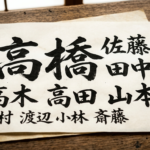 高橋 佐藤
田中
高木 高田 山本
村 渡辺 小林 斎藤